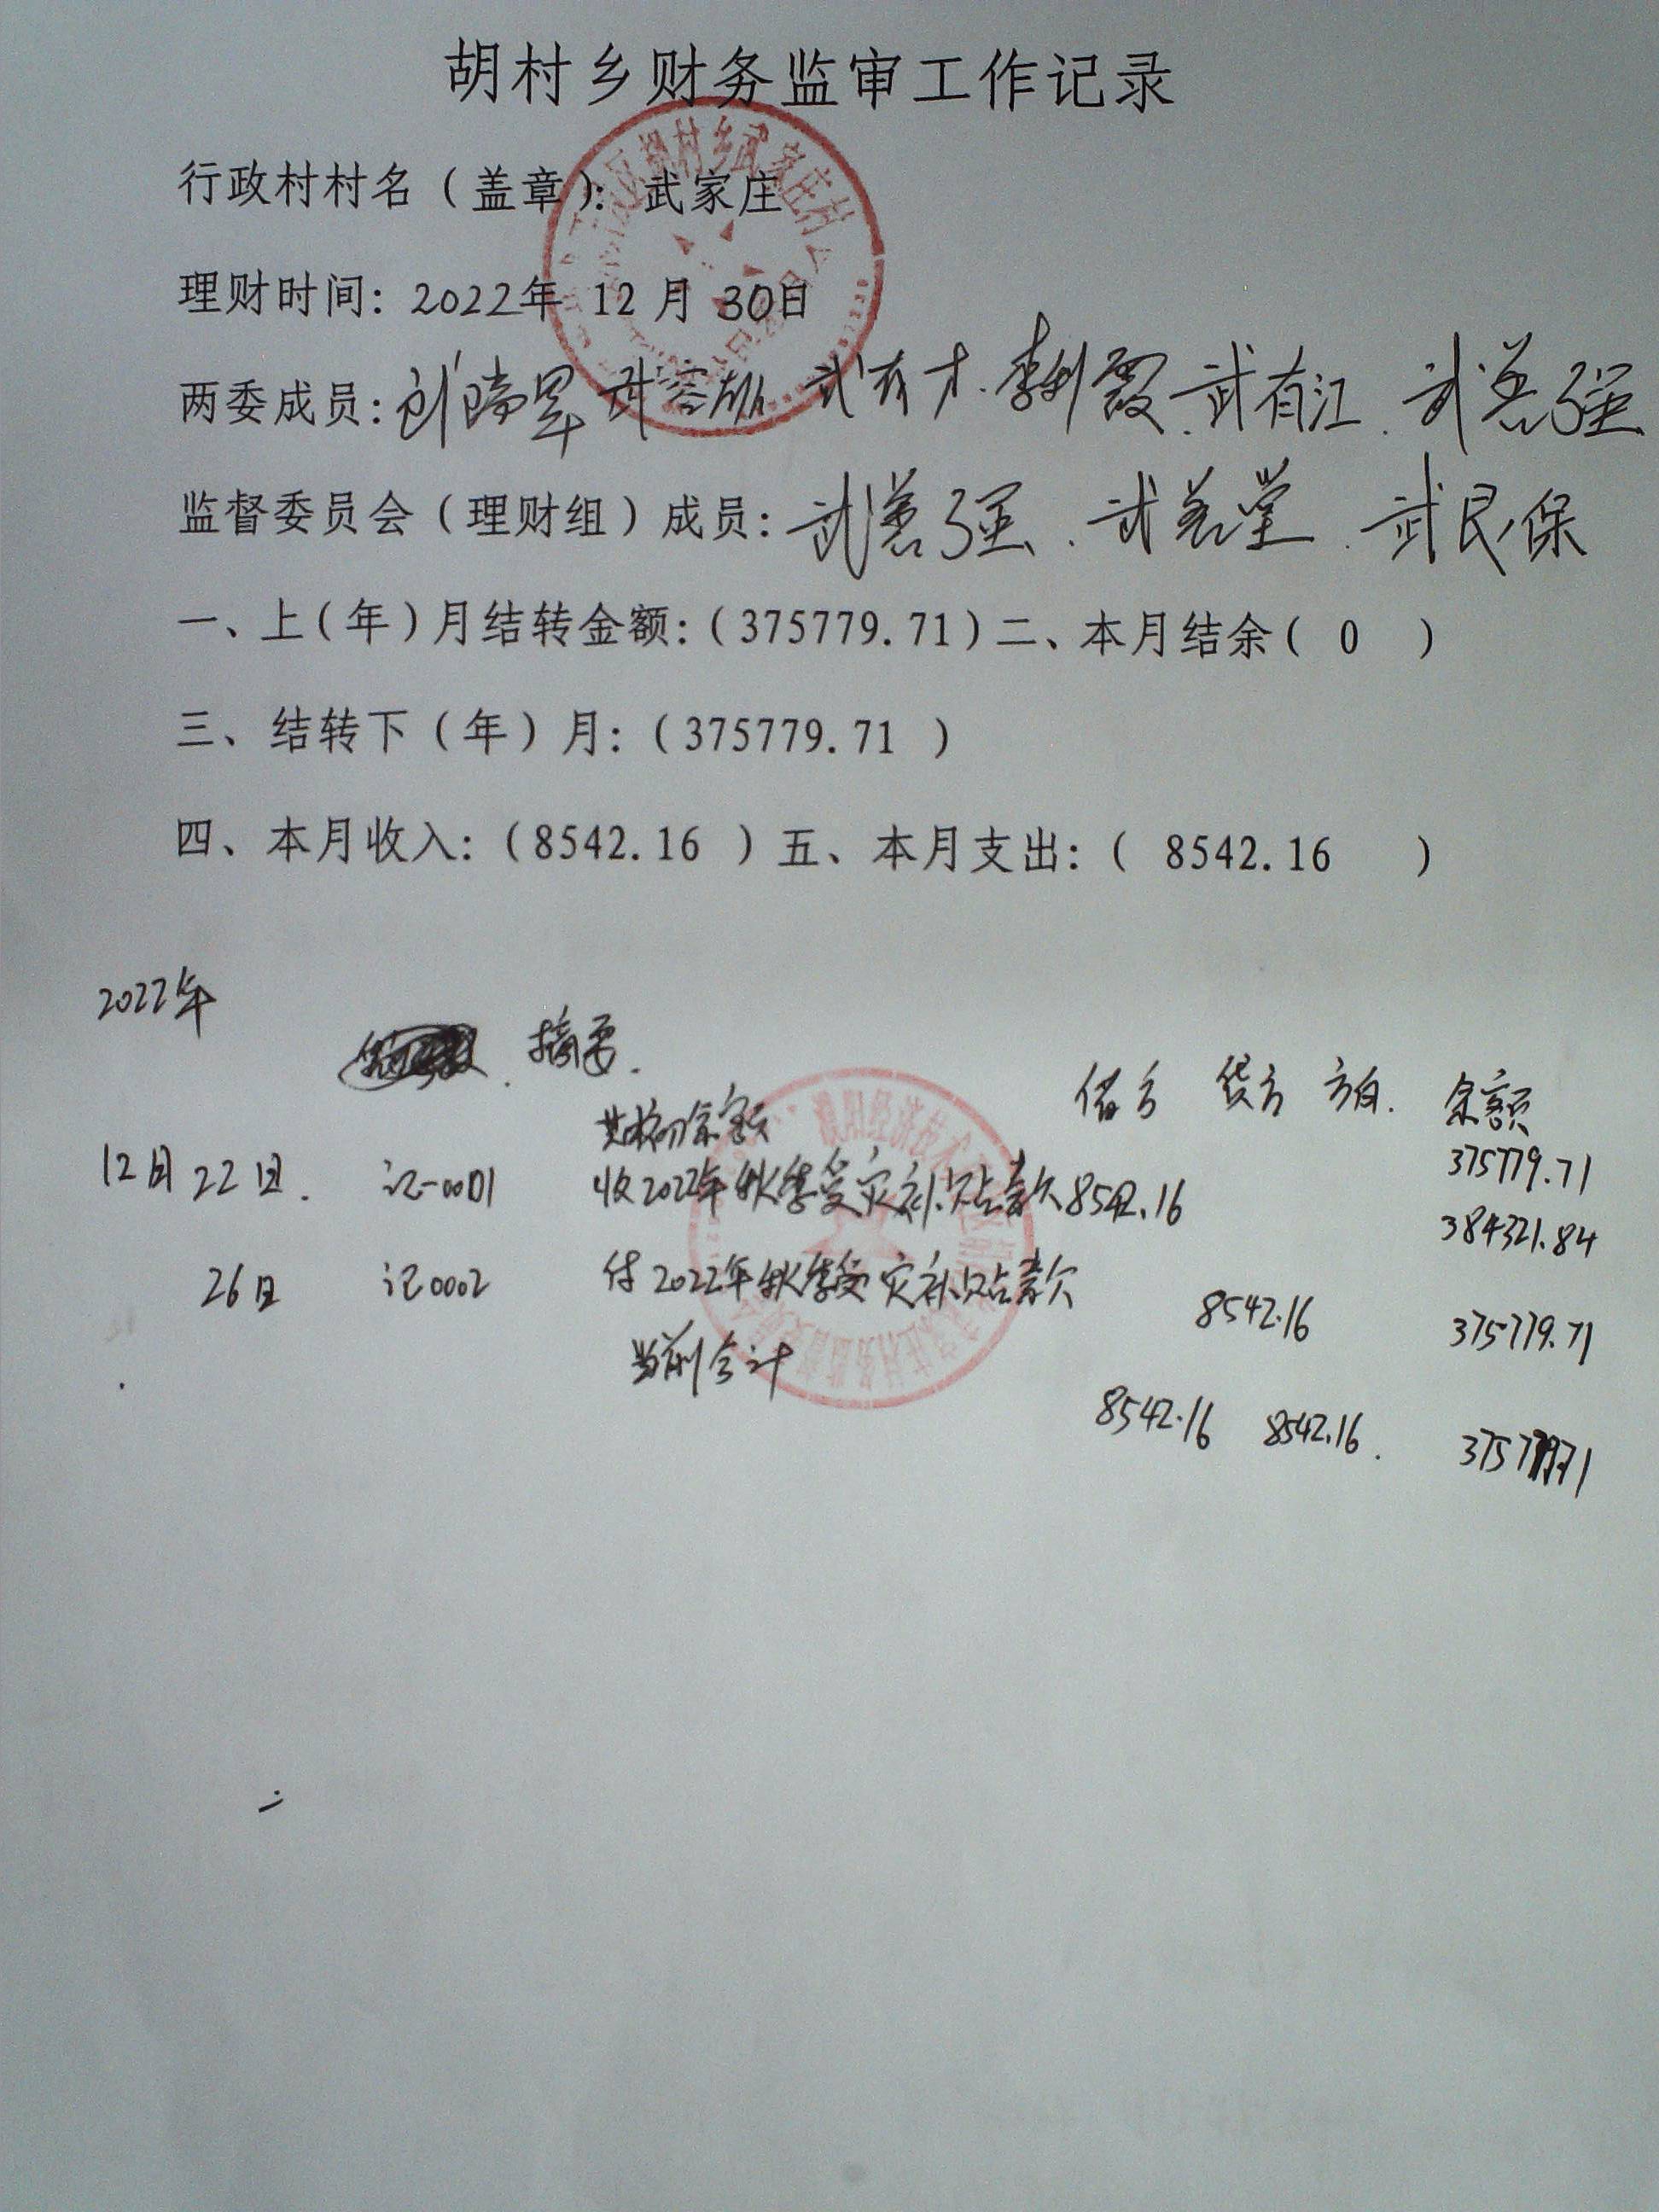 胡村乡财务监审工作记录
行政村村名（盖章）：武家庄
理财时间：2022年 12 月 30日
两委成员：武有才.李利霞.武有江.武善强
监督委员会（理财组）成员：武善强.武善堂.武民保
一、上（年）月结转金额：（375779.71）二、本月结余（ 0 ）
三、结转下（年）月：（375779.71 ）
四、本月收入：（8542.16 ）五、本月支出：（ 8542.16 ）
2022年
摘要. 借方 贷方 方向. 余额
期初余额 375779.71
12月22日. 记-0001 收2022年秋季受灾补贴款 8542.16 384321.84
26日 记0002 付2022年秋季受灾补贴款 8542.16 375779.71
当前合计 8542.16 8542.16. 375779.71